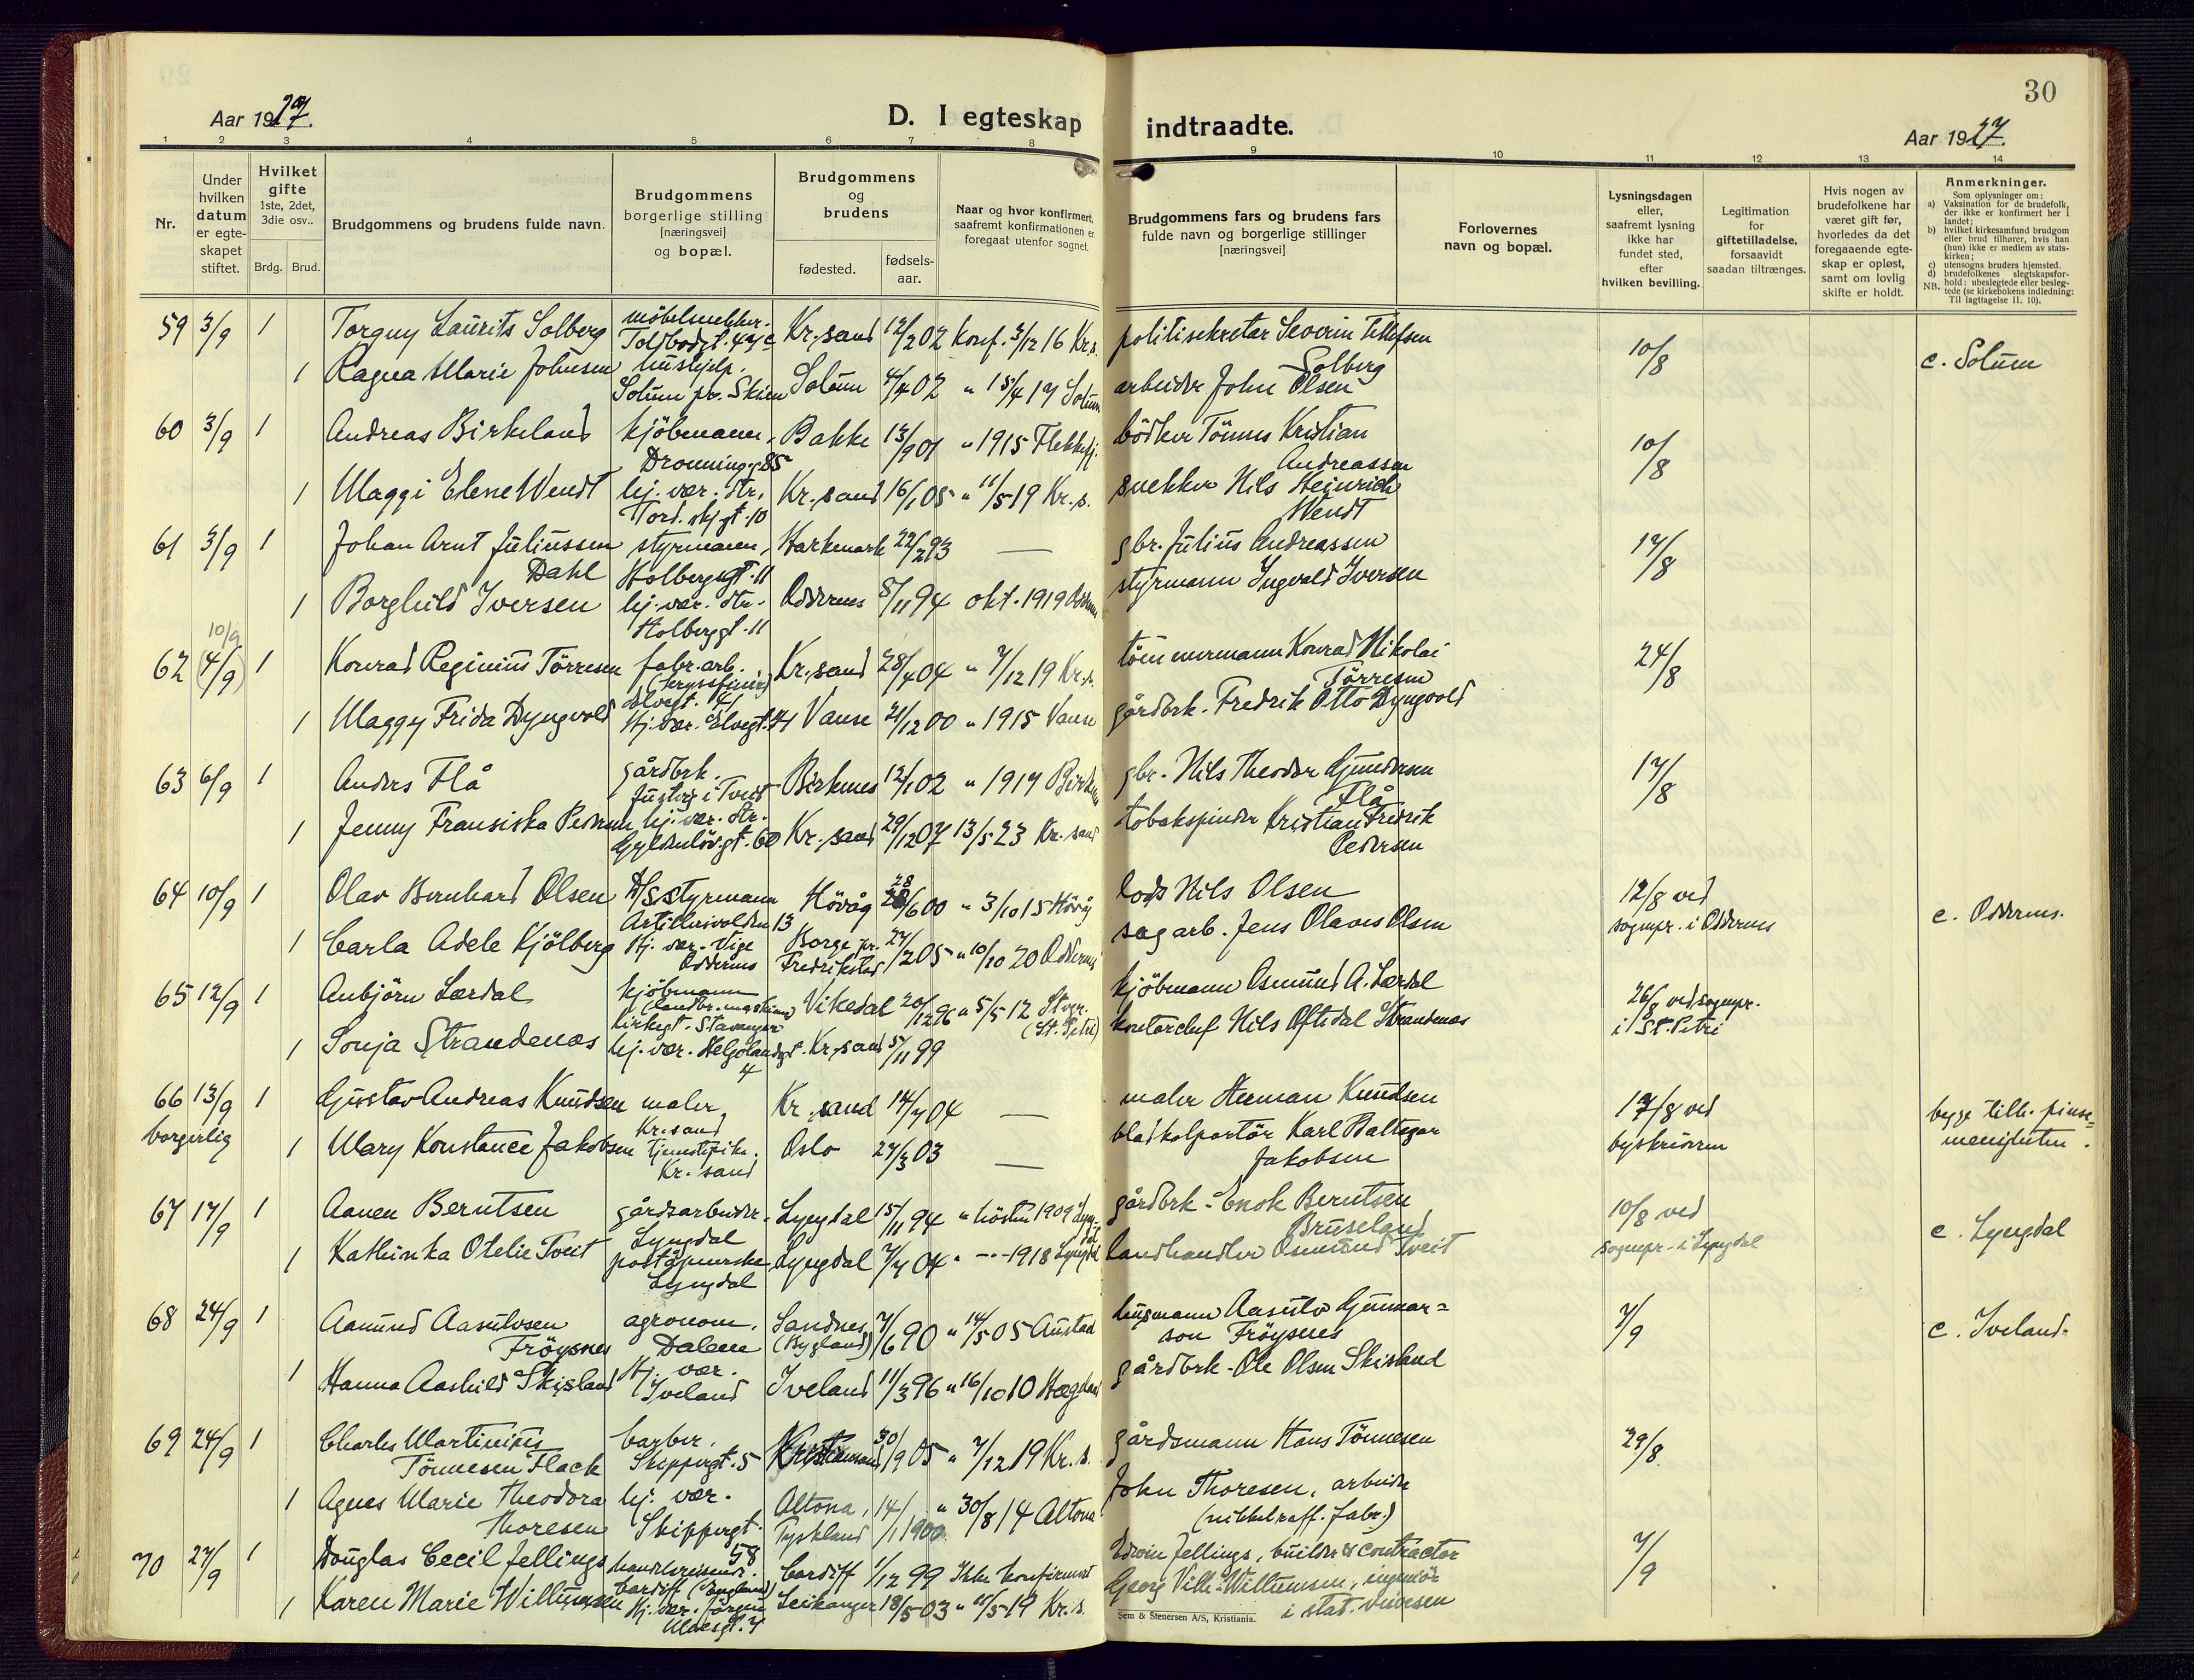 30
Aar 1927.
D. I egteskap indtraadte.
Aar 1927.
1 2 3 4 5 6 7 8 9 10 11 12 13 14
Nr.
Under hvilken datum er egte-skapet stiftet.
Hvilket gifte 1ste, 2det, 3die osv..
Brdg. Brud.
Brudgommens og brudens fulde navn.
Brudgommens borgerlige stilling [næringsvei] og bopæl.
Brudgommens og brudens
fødested.
fødsels-aar.
Naar og hvor konfirmert, saafremt konfirmationen er foregaat utenfor sognet.
Brudgommens fars og brudens fars fulde navn og borgerlige stillinger [næringsvei]
Forlovernes navn og bopæl.
Lysningsdagen eller, saafremt lysning ikke har fundet sted, efter hvilken bevilling.
Legitimation for giftetilladelse, forsaavidt saadan tiltrænges.
Hvis nogen av brudefolkene har været gift før, hvorledes da det foregaaende egte-skap er opløst, samt om lovlig skifte er holdt.
Anmerkninger.
Som oplysninger om:
a) Vaksination for de brudefolk, der ikke er konfirmert her i landet;
b) hvilket kirkesamfund brudgom eller brud tilhører, hvis han (hun) ikke er medlem av stats-kirken;
c) utensogns bruders hjemsted.
d) brudefolkenes slegtskapsfor-hold: ubeslegtede eller besleg-tede (se kirkebokens indledning: NB. Til iagttagelse II. 10).
59 3/9 1 Torguy Laurits Solberg møbelsnekker. Toldbodgt. 47c Kr.sand 12/2 02 Konf. 3/12 16 Kr.s. politisekretær Severin Tellefsen Solberg 10/8
1 Ragna Marie Johnsen hushjelp. Solum pr. Skien Solum 4/4 02 " 15/4 17 Solum arbeider John Olsen c. Solum
60 3/9 1 Andreas Birkeland kjöbmann, Dronningg. 85 Bakke 13/9 01 " 1915 Flekkefj. bödker Tönnes Kristian Andreassen 10/8
1 Maggi Elene Wendt hj. vær. Str. Tord.skj.gt. 10 Kr.sand 16/1 05 " 11/5 19 Kr.s. snekker Nils Heinrich Wendt
61 3/9 1 Johan Arnt Juliussen Dahl styrmann, Holbergsgt. 11 Harkmark 22/2 93 — gbr. Julius Andreassen 17/8
1 Borghild Iversen hj. vær. Str. Holberggt. 11 Oddernes 8/11 94 okt. 1919 Oddernes styrmann Ingvald Iversen
10/9
62 (4/9) 1 Konrad Reginius Törresen fabr.arb. (kryssfinér) Elvegt. 41 Kr.sand 28/4 04 " 7/12 19 Kr.s. tömmermann Konrad Nikolai Törresen 24/8
1 Maggy Frida Dyngvold Hj. vær. Elvegt. 41 Vanse 21/12 00 " 1915 Vanse gårdbrk. Fredrik Otto Dyngvold
63 6/9 1 Anders Flå gårdbrk. i Tveit Birkenes 12/1 02 " 1917 Birkenes gbr. Nils Theodor Gundersen Flå 17/8
1 Jenny Fransiska Pedersen hj. vær. Str. Gyldenlövsgt. 60 Kr.sand 29/12 07 13/5 23 Kr.sand tobakspinder Kristian Fredrik Pedersen
64 10/9 1 Olav Bernhard Olsen D/S styrmann Artillerivolden 13 Hövåg 28/6 00 " 3/10 15 Hövåg lods Nils Olsen 12/8 ved sognepr. i Oddernes
1 Carla Adele Kjölberg Hj. vær. Vige Oddernes Borge pr. Fredrikstad 27/2 05 " 10/10 20 Oddernes sagarb. Jens Olaves Olsen c. Oddernes.
65 12/9 1 Anbjörn Lærdal kjöbmann (landbr. maskiner) kirkegt. Stavanger Vikedal 20/12 96 " 5/5 12 Stvgr. (St. Petri) kjöbmann Osmund A. Lærdal 26/8 ved sognepr. i St. Petri
1 Sonja Strandenæs hj. vær. Helgolandsgt. 4 Kr.sand 5/11 99 kontorchef Nils Oftedal Strandenæs
66 13/9 1 Gustav Andreas Knudsen maler, Kr.sand Kr.sand 14/7 04 — maler Herman Knudsen 17/8 ved byskriveren begge tilh. pinse-menigheten.
borgerlig 1 Mary Konstance Jakobsen tjenestepike. Kr.sand Oslo 27/3 03 — bladkolportör Karl Baltazar Jakobsen
67 17/9 1 Aanen Berntsen gårdsarbeider. Lyngdal Lyngdal 15/11 94 " hösten 1909 Lyngdal gårdbrk. Enok Berntsen Bruseland 10/8 ved sognepr. i Lyngdal
1 Kathinka Otelie Tveit poståpnerske Lyngdal Lyngdal 7/7 04 " — 1918 Lyngdal landhandler Osmund Tveit c. Lyngdal
68 24/9 1 Aamund Aasulvsen Fröysnes agronom, Dalene Sandnes (Bygland) 7/6 90 " 14/5 05 Austad husmann Aasulv Gunnar-son Fröysnes 7/9
1 Hanna Aashild Skisland Hj. vær. Iveland Iveland 11/3 96 " 16/10 10 Hægeland gårdbrk. Ole Olsen Skisland c. Iveland.
69 24/9 1 Charles Martinius Tönnesen Flack barber. Skippergt. 5 Kristiansand 30/9 05 " 7/12 19 Kr.s. gårdsmann Hans Tönnesen 29/8
1 Agnes Marie Theodora Thoresen hj. vær. Skippergt. 58 Altona, Tyskland 14/1 1900 " 30/8 14 Altona John Thoresen, arbeider (nikkelraff. fabr.)
70 27/9 1 Douglas Cecil Jellings handlsreisende. Cardiff (England) Cardiff 1/12 99 Ikke konfirmert Edwin Jellings, builder & contractor 7/9
1 Karen Marie Willumsen Hj. vær. Jörgen Moesgt. 7 Leikanger 18/5 03 " /5 19 Kr.s. Georg Vilh. Willumsen, ingeniör i stat. veivesen
Sem & Stenersen A/S, Kristiania.